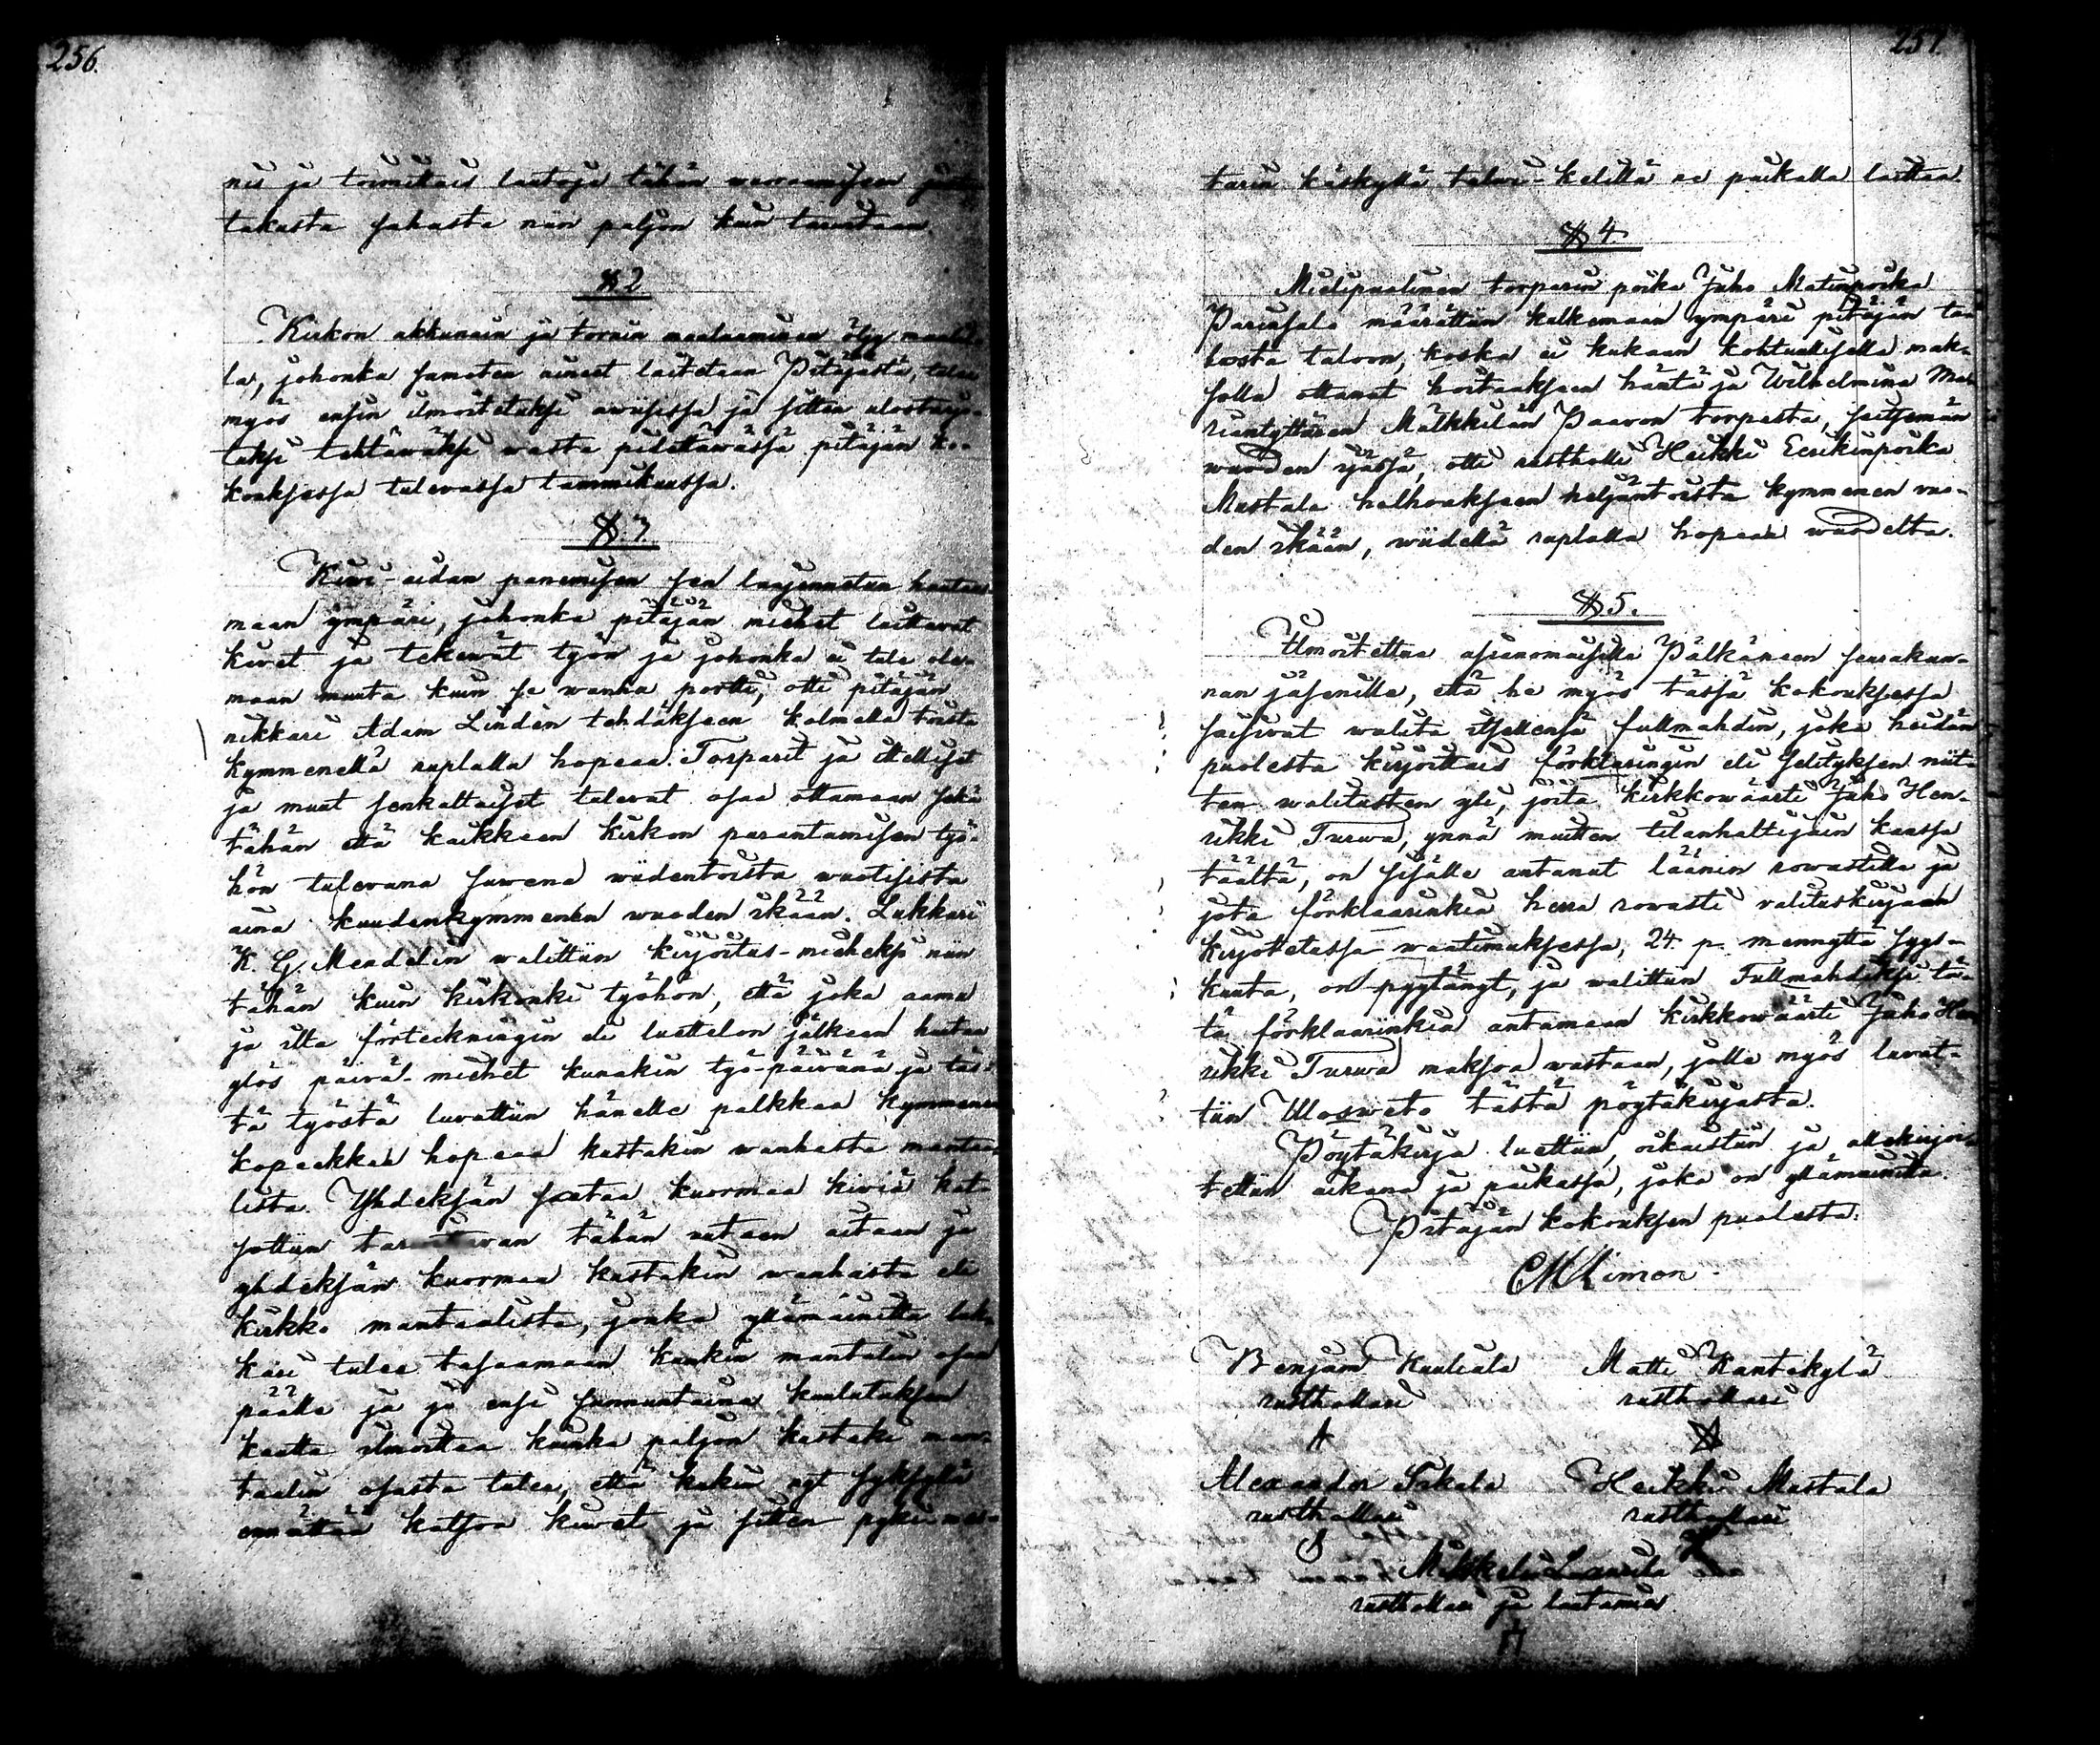 256.
nis ja toimittais lautoja tähän
takasta sahasta niin paljon kuin tarvitaan.
§ 2
Kirkon akkunain ja tornin maalaaminen öljy maalil-
la, johonka samoten ainest laitetaan Pitäjästä, tulee
myös ensin ilmoitetuksi awisissa ja sitten
tuksi tehtäwäksi wasta pidettäwässä pitäjän ko-
kouksessa tulevassa tammikuussa.
§. 3
Kiwi-aidan panemisen sen laajennetun hautaus-
maan ympäri, johonka pitäjän miehet laittavat
kivet ja tekewät työn ja johonka ei tule ole-
maan muuta kuin se wanha portti, otti pitäjän
nikkari Adam Lindèn tehdäkseen kolmella toista
kymmenellä ruplalla hopeaa. Torparit ja itelliset
ja muut senkaltaiset tulevat osaa ottamaan sekä
tähän että kaikkeen kirkon parantamisen työ-
hön tulevana suwena wiidentoista wuotisista
aina kuudenkymmenen wuoden ikään. Lukkari
K. G. Mendelin walittiin kirjoitus-mieheksi niin
tähän kuin kirkonki työhön, että joka aamu
ja ilta förteckningin eli luettelon jälkeen huutaa
ylös päivä-miehet kunakin työ-päivänä ja täs-
tä työstä luvattiin hänelle palkkaa kymmenen
kopeekkaa hopeaa kustakin wanhasta mantaa-
lista. Yhdeksän sataa kuormaa kiviä kat-
sottiin tähän uuteen aitaan ja
yhdeksän kuormaa kustakin wanhasta eli
kirkko mantaalista, jonka yllämainittu luk-
kari tulee tasaamaan kunkin mantalin osan
päälle ja jo ensi sunnuntaina kuulutuksen
kautta ilmoittaa kuinka paljon kustaki man-
taalin osasta tulee, että kukin nyt syksyllä
ennättää katsoa kiwet ja sitten
257
tarin käskyllä talwi-kelillä ne paikalla laittaa.
§ 4.
Mielipuolinen torparin poika Juho Matinpoika
Parinsala määrättiin kulkemaan ympäri pitäjän ta-
losta taloon, koska ei kukaan kohtuullisella mak-
solla ottanut hoitaaksen häntä ja Wilhelmina Ma-
riantyttären Mälkkilän Paavon torpasta, seitsemän
wuoden ijässä, otti rusthollari Heikki Eerikinpoika
Mustala holhoukseen neljäntoista kymmenen wuo-
den ikään, wiidellä ruplalla hopeaa wuodelta.
§. 5.
Ilmoitettua asianomaisilla Pälkäneen seurakun-
nan jäsenille, että he myös tässä kokouksessa
saisivat walita itsellensä fullmahdin, joka heidän
puolesta kirjoittais förklaringin eli selityksen niit-
ten walitusten yli, joita kirkkowäärti Juho Hen-
rikki Turwa, ynnä muitten tilanhaltijain kanssa
täältä, on sisälle antanut läänin rowastilla ja
jota förklaarinkia herra rowasti valituskirjaan
kirjotetussa waatimuksessa, 24 p. mennyttä syys-
kuuta, on pyytänyt, ja walittiin Fullmahdiksi tä-
tä förklaarinkia antamaan kirkkowäärti Juho Hen-
rikki Turwa maksoa wastaan, jolle myös luvat-
tiin Ulosweto tästä pöytäkirjasta.
Pöytäkirja luettiin, oikaistiin ja allekirjoi-
tettiin aikana ja paikassa, joka on yllämainittu.
Pitäjän kokouksen puolesta:
CMLimon.
Benjam Kuuliala Matti Kantokylä
rusthollari rusthollari
Alexander Takala Heikki Mustala
rusthollari rusthollari
Mikkeli Laurila
rusthollari ja lautamies